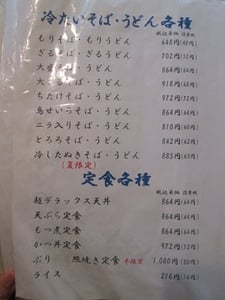 冷たいそば・うどん各種
税込単価 消費税
もりそば・もりうどん 648円(48円)
ざるそば・ざるうどん 702円(52円)
大盛そば・うどん 864円(64円)
大ざるそば・うどん 918円(68円)
ちたけそば・うどん 972円(72円)
鳥せいろそば・うどん 864円(64円)
ニラ入りそば・うどん 810円(60円)
とろろそば・うどん 842円(62円)
冷したぬきそば・うどん 885円(65円)
(夏限定)
定食各種
税込単価 消費税
超デラックス天丼 864円(64円)
天ぷら定食 864円(64円)
もつ煮定食 864円(64円)
かつ丼定食 972円(72円)
ぶり 照焼き定食 冬限定 1,080円(80円)
ライス 216円(16円)